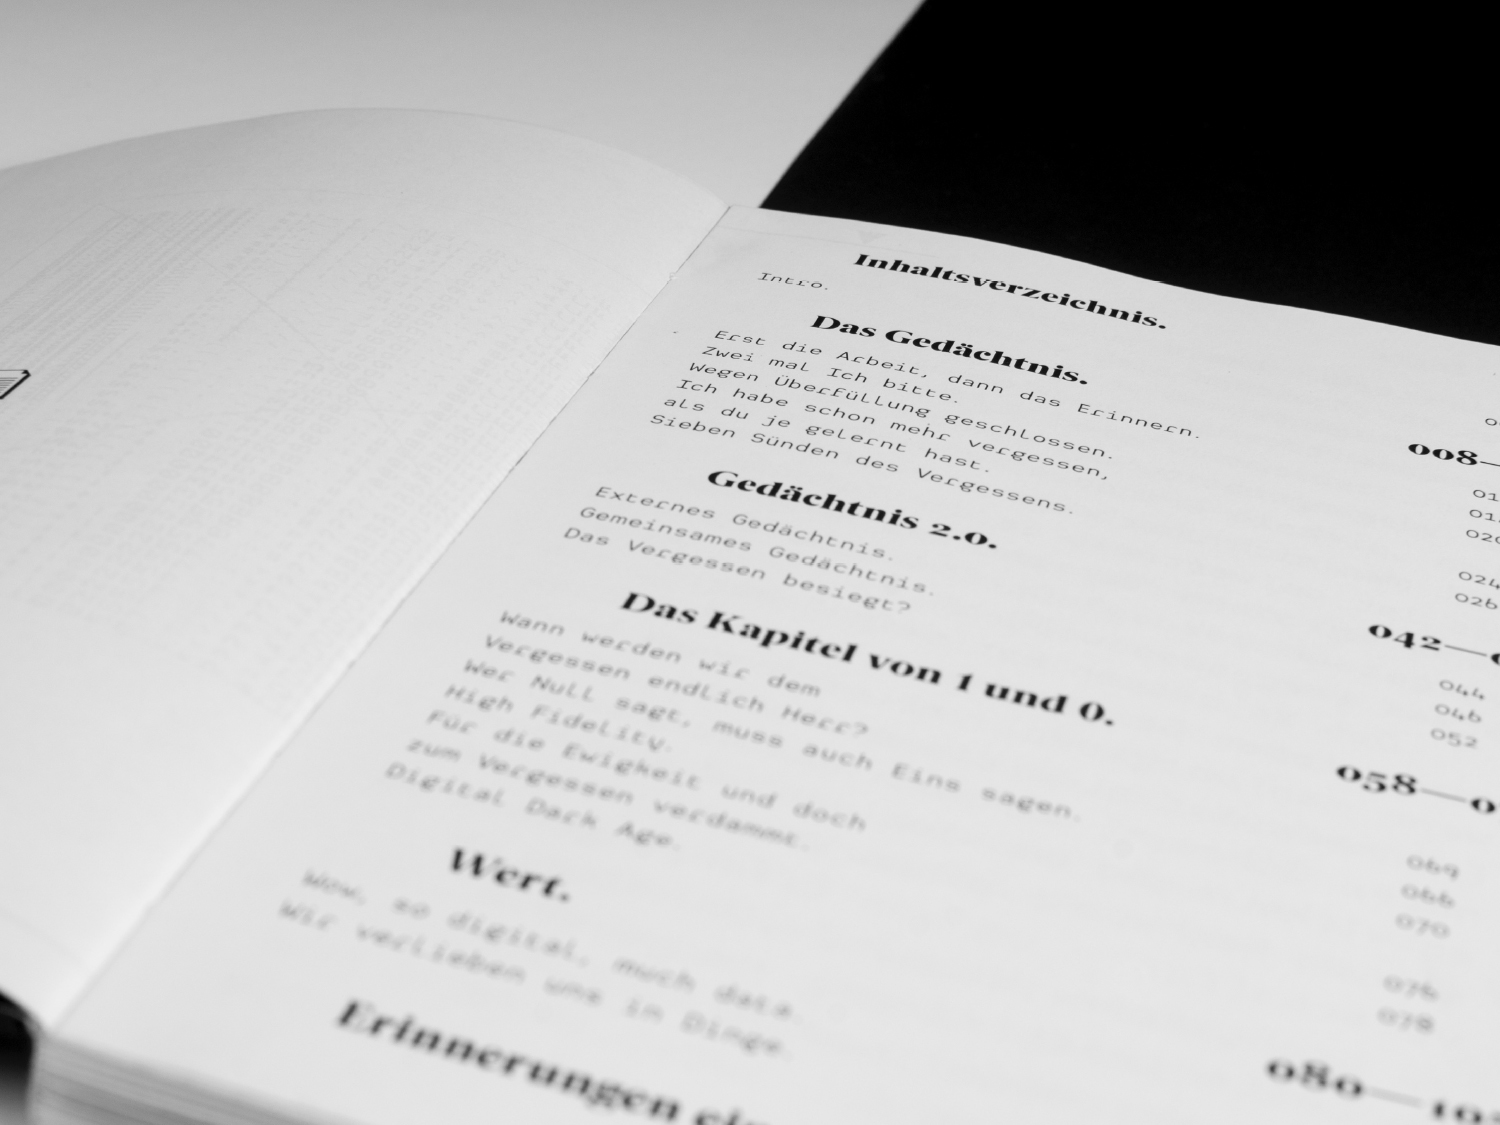 Inhaltsverzeichnis.
Intro.
Das Gedächtnis.
008—
Erst die Arbeit, dann das Erinnern.
Zwei mal Ich bitte.
Wegen Überfüllung geschlossen.
Ich habe schon mehr vergessen,
als du je gelernt hast.
Sieben Sünden des Vergessens.
024
026
Gedächtnis 2.0.
042—
Externes Gedächtnis.
044
Gemeinsames Gedächtnis.
046
Das Vergessen besiegt?
052
Das Kapitel von 1 und 0.
058—
Wann werden wir dem
Vergessen endlich Herr?
Wer Null sagt, muss auch Eins sagen.
066
High Fidelity.
070
Für die Ewigkeit und doch
zum Vergessen verdammt.
076
Digital Dark Age.
078
Wert.
080—
Wow, so digital, much data.
Wir verlieben uns in Dinge.
Erinnerungen